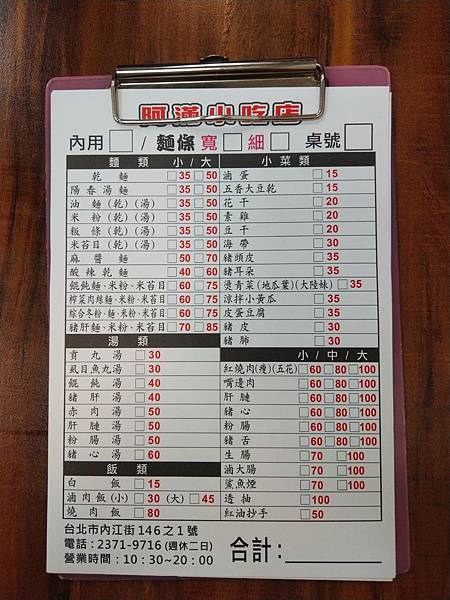 阿滿小吃店
內用□ / 麵條 寬□ 細□ 桌號□
麵類 小/大
乾麵 □35 □50
陽春湯麵 □35 □50
油麵(乾)(湯) □35 □50
米粉(乾)(湯) □35 □50
粄條(乾)(湯) □35 □50
米苔目(乾)(湯) □35 □50
麻醬麵 □50 □70
酸辣乾麵 □40 □60
餛飩麵、米粉、米苔目 □60 □75
榨菜肉絲麵、米粉、米苔目 □60 □75
綜合冬粉、麵、米粉、米苔目 □60 □75
豬肝麵、米粉、米苔目 □70 □85
湯類
貢丸湯 □30
虱目魚丸湯 □30
餛飩湯 □40
豬肝湯 □40
赤肉湯 □50
肝腱湯 □50
粉腸湯 □50
豬心湯 □60
飯類
白飯 □15
滷肉飯(小) □30 (大) □45
燒肉飯 □80
小菜類
滷蛋 □15
五香大豆乾 □15
花干 □20
素雞 □20
豆干 □20
海帶 □30
豬頭皮 □35
豬耳朵 □35
燙青菜(地瓜葉)(大陸妹) □35
涼拌小黃瓜 □35
皮蛋豆腐 □35
豬皮 □30
豬肺 □30
小/中/大
紅燒肉(瘦)(五花) □60 □80 □100
嘴邊肉 □60 □80 □100
肝腱 □60 □80 □100
豬心 □60 □80 □100
粉腸 □60 □80 □100
豬舌 □60 □80 □100
生腸 □70 □100
滷大腸 □70 □100
鯊魚煙 □70 □100
透抽 □100
紅油抄手 □50
台北市內江街146之1號
電話:2371-9716(週休二日)
營業時間:10:30~20:00
合計: